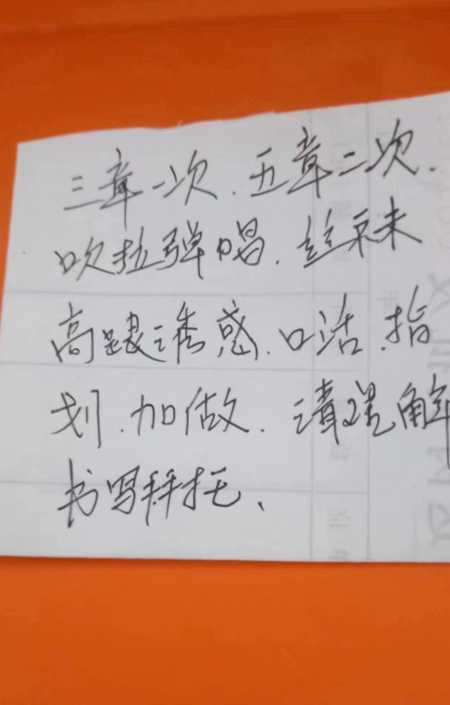 三章一次、五章二次、
吹拉弹唱、丝袜
高跟诱惑、口活、指
划、加做、请理解
书写拜托、